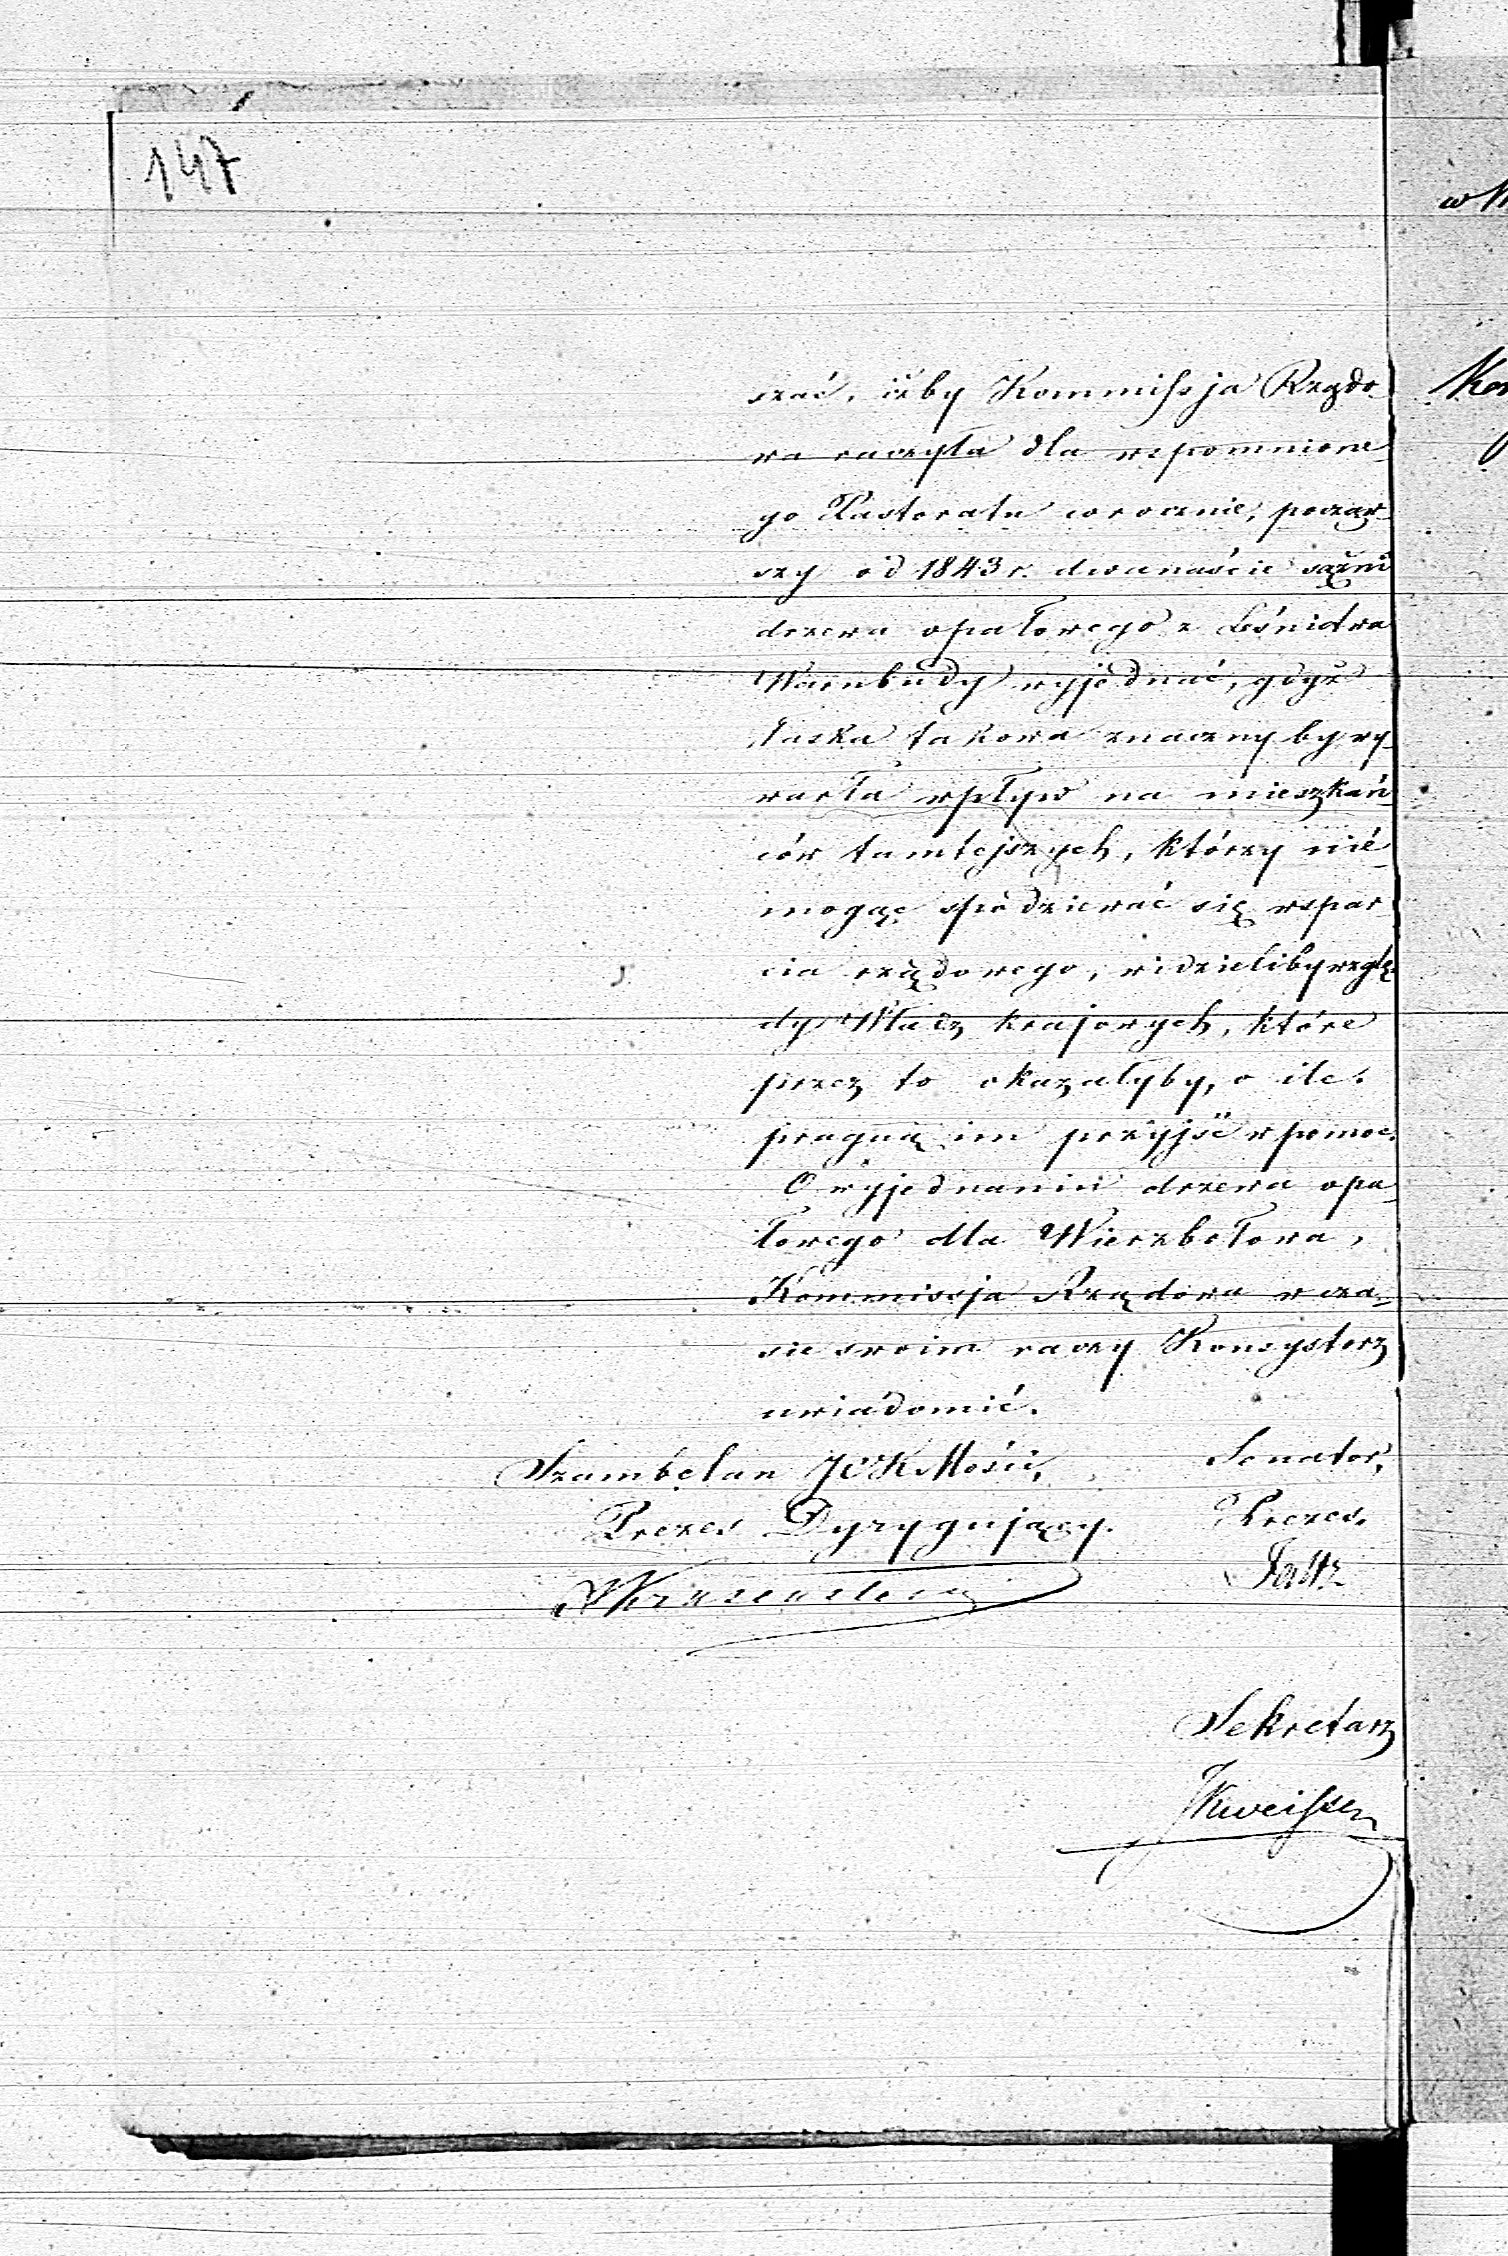 147
szać, iżby Kommissja Rządo-
wa raczyła dla wspomnione-
go Pastoratu corocznie, począw-
szy od 1843 r. dwanaście sążni
drzewa opałowego z Leśnictwa
wyjednać, gdyż
łaska takowa znaczny by wy-
warła wpływ na mieszkań-
ców tamtejszych, którzy nie
mogąc spodziewać się wspar-
cia rządowego, widzieliby wzglę-
dy Władz krajowych, które
przez to okazałyby, o ile
pragną im przyjść w pomoc.
O wyjednaniu drzewa opa-
łowego dla Wierzbołowa,
Kommissja Rządowa w cza-
sie swoim raczy Konsystorz
uwiadomić.
Szambelan JCKMości, Senator,
Prezes Dyrygujący. Prezes.
Sekretarz